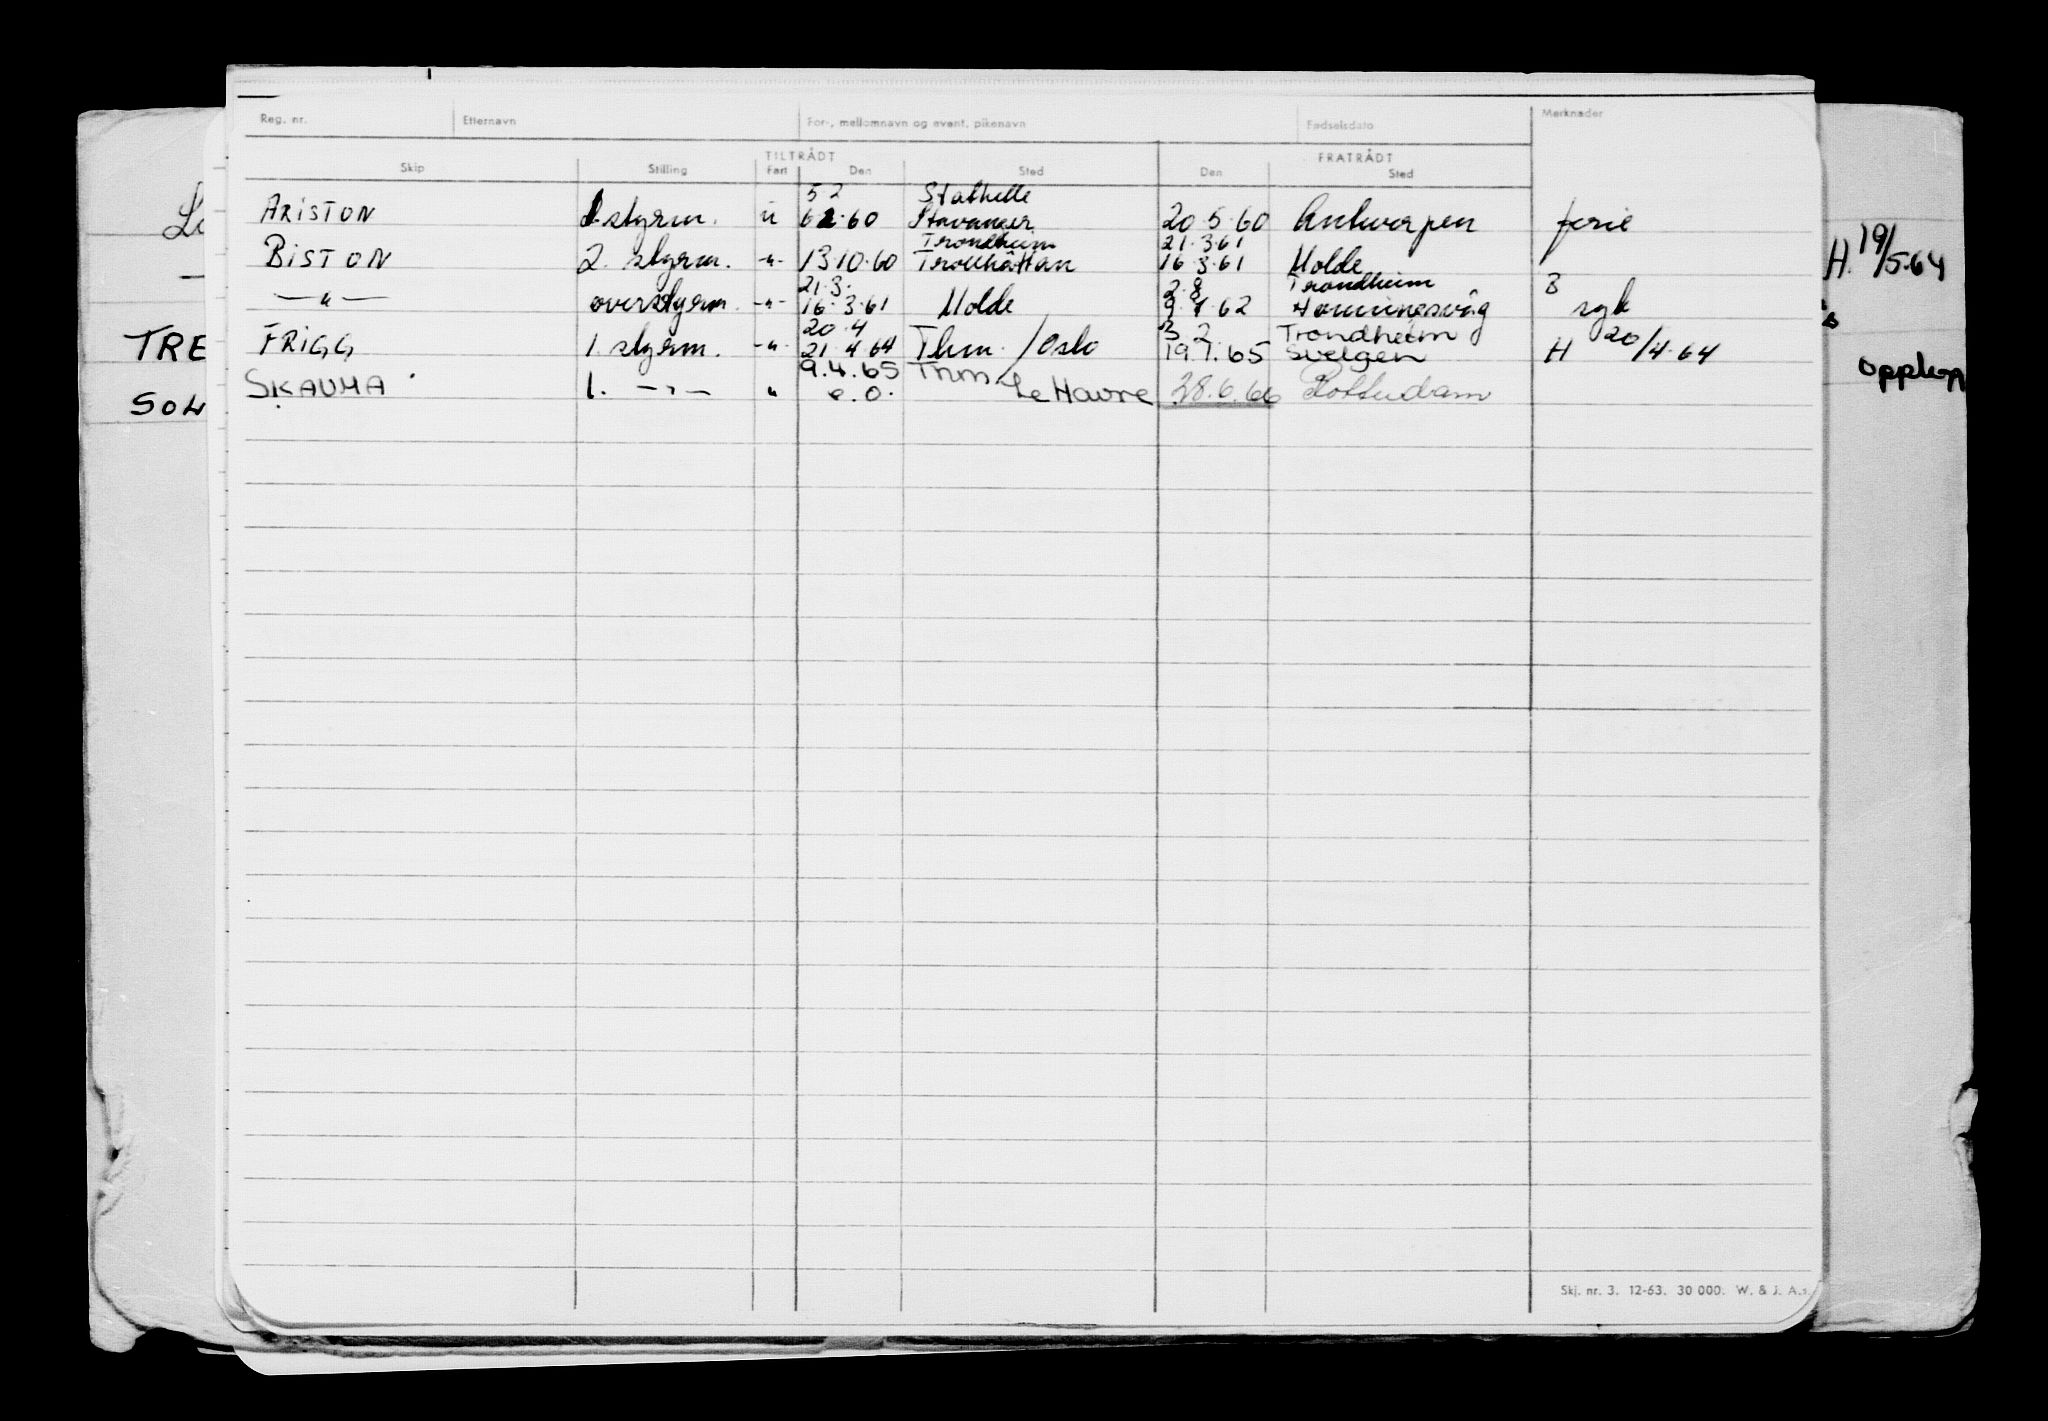 Reg. nr. Etternavn For-, mellomnavn og event. pikenavn Fødselsdato Merknader
TILTRÅDT FRATRÅDT
Skip Stilling Fart Den Sted Den Sted
5 2 Stathelle
ARISTON styrm. u 6 2.60 Stavanger 20.5.60 Antwerpen ferie
Trondheim 21.3.61
BISTON 2. styrm. -"- 13.10.60 Trollhättan 16.3.61 Molde
21.3. 2.8 Trondheim
—"— overstyrm. -"- 16.3.61 Molde 9.7.62 Honningsvåg syk
20.4 3 2. Trondheim
FRIGG 1. styrm. -"- 21.4.64 Thm. /Oslo 19.1.65 Svelgen H 20/4.64
9.4.65 Trhm/
SKAUMA 1. —"— " e.o. Le Havre 28.6.66 Rotterdam
H. 19/5.64
TRE
SOL
Skj. nr. 3. 12-63. 30 000. W. & J. A.s.